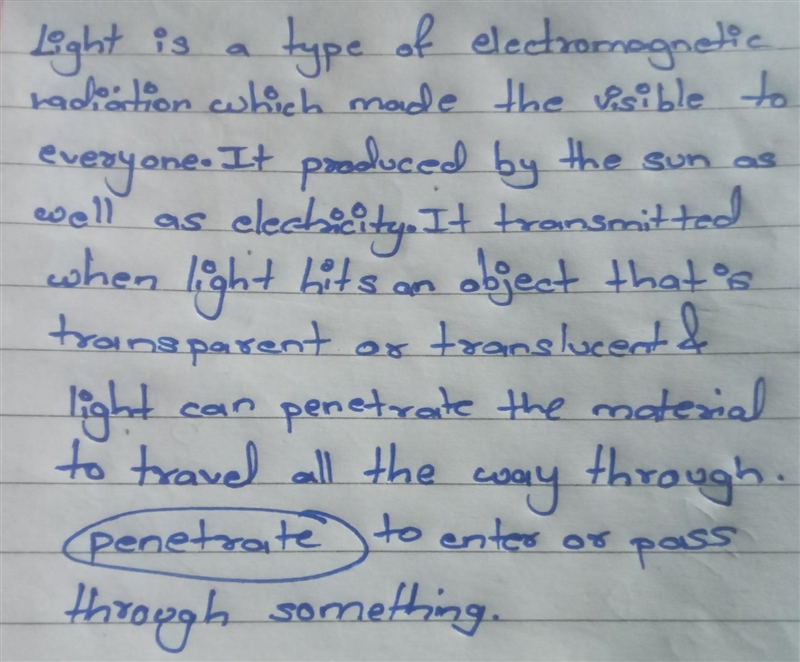 Light is a type of electromagnetic
radiation which made the visible to
everyone. It produced by the sun as
well as electricity. It transmitted
when light hits an object that's
transparent or translucent &
light can penetrate the material
to travel all the way through.
penetrate to enter or pass
through something.